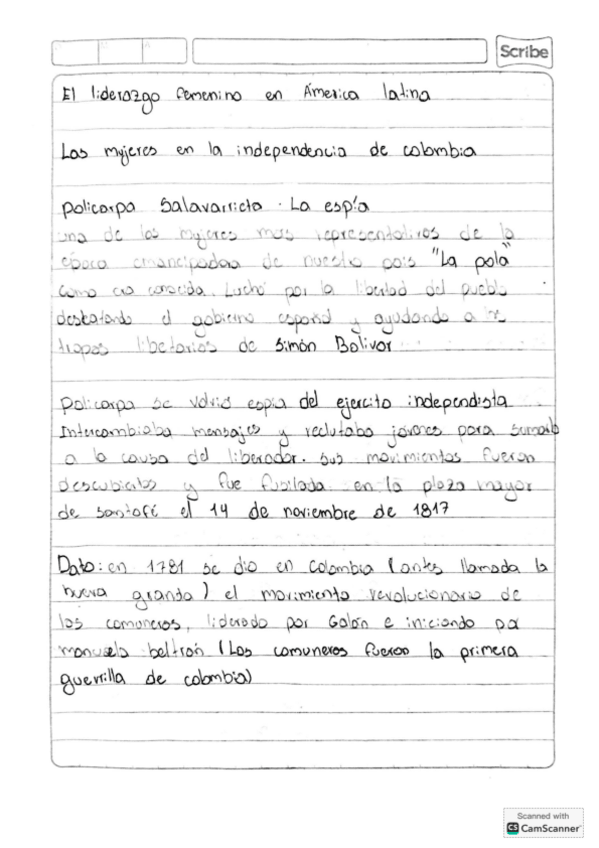 Scribe
El liderazgo femenino en America latina
Las mujeres en la independencia de colombia
policarpa Salavarrieta. La espía
una de las mujeres mas representativas de la
epoca emancipadora de nuestro pais "La pola"
como era conocida. Luchó por la libertad del pueblo
desbatando el gobierno español y ayudando a las
tropas libetarias de Simón Bolivar
Policarpa se volvió espia del ejercito independista
Intercambiaba mensajes y reclutaba jóvenes para sumarlo
a la causa del liberador. sus movimientos fueron
descubiertos y fue fusilada en la plaza mayor
de santafé el 14 de noviembre de 1817
Dato: en 1781 se dio en Colombia (antes llamada la
nueva granda) el movimiento revolucionario de
los comuneros, liderado por Galán e iniciando por
manuela beltrán (Los comuneros fueron la primera
guerrilla de colombia)
Scanned with
CS CamScanner